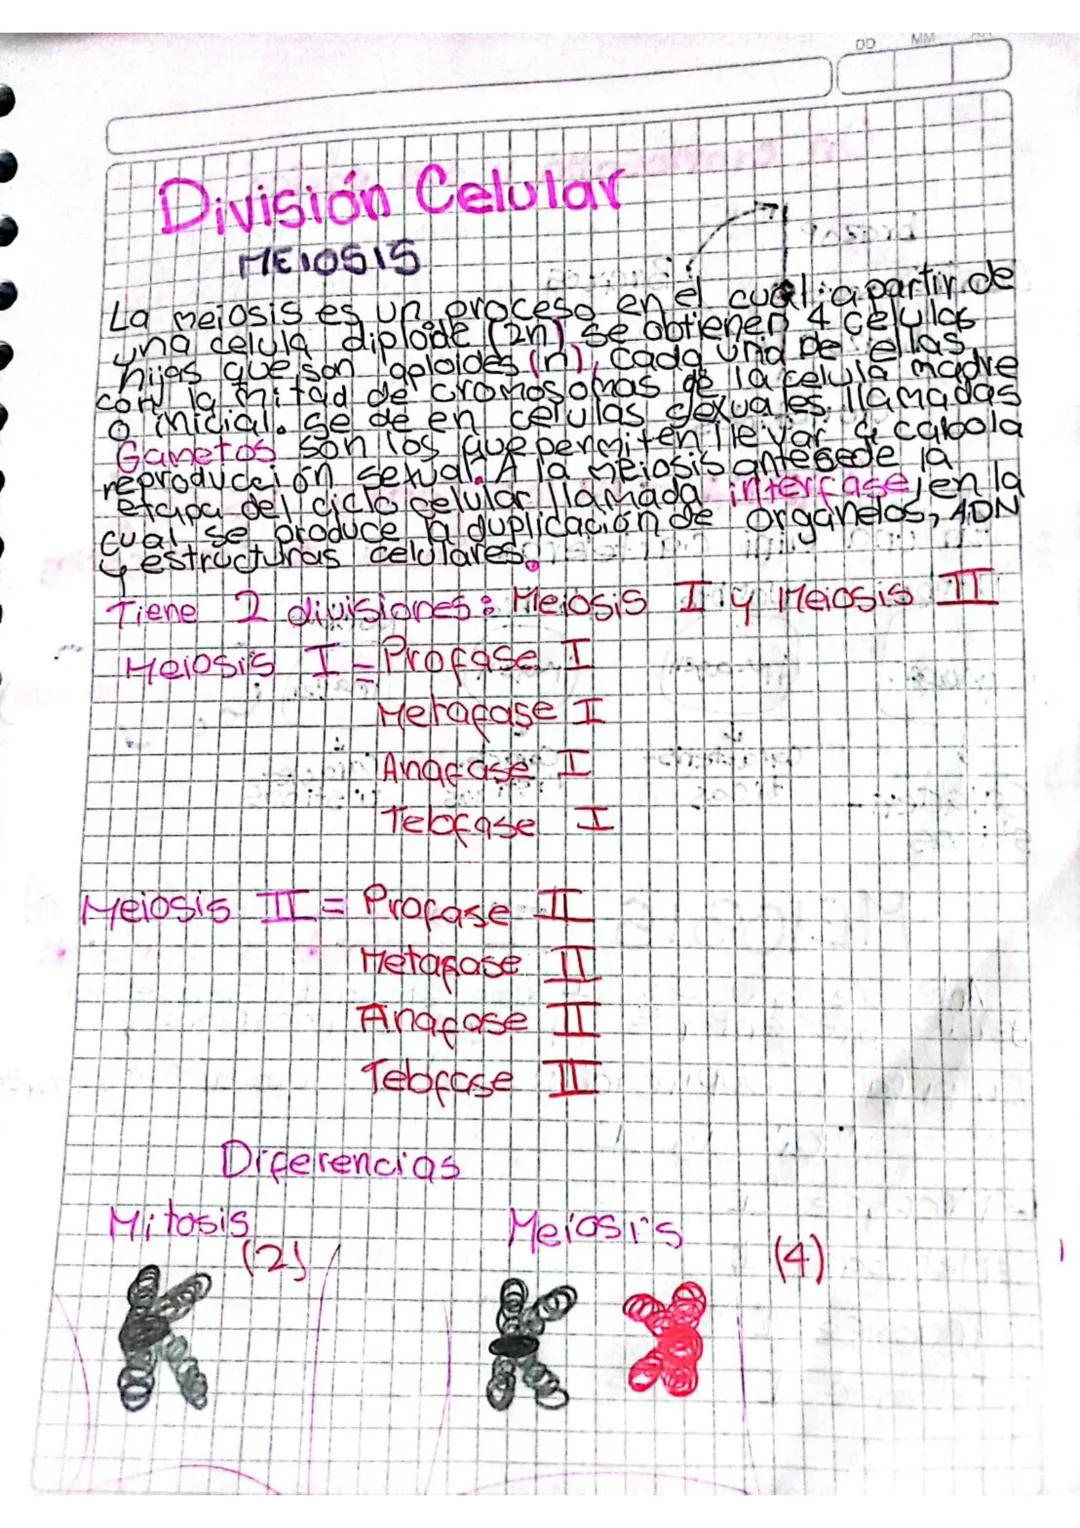 DD MM
División Celular
MEIOSIS
La meiosis es un proceso en el cual: a partir de
una celula diploide (2n) se obtienen 4 celulas
hijas que son aploides (n), cada una de ellas
con la mitad de cromosomas de la celula madre
o inicial. Se de en celulas sexuales llamadas
Gametos son los que permiten llevar a cabola
reproducción sexual. A la meiosis antesede la
etapa del ciclo celular llamada interfase, en la
cual se produce la duplicación de organelos, ADN
y estructuras celulares.
Tiene 2 divisiones: Meiosis I y Meiosis II
Meiosis I = Profase I
Metafase I
Anafase I
Telofase I
Meiosis II = Profase II
Metafase II
Anafase II
Telofase II
Diferencias
Mitosis (2) Meiosis (4)